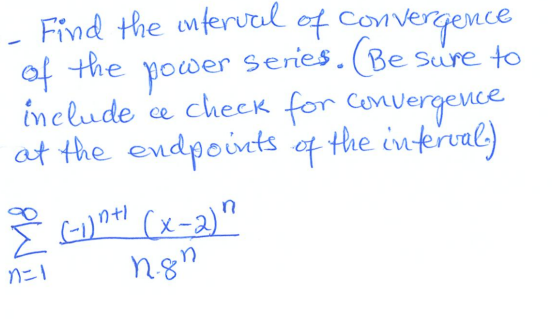 - Find the interval of convergence
of the power series. (Be sure to
include a check for convergence
at the endpoints of the interval.)
∞
Σ (-1)^{n+1} (x-2)^n
n=1 n·8^n